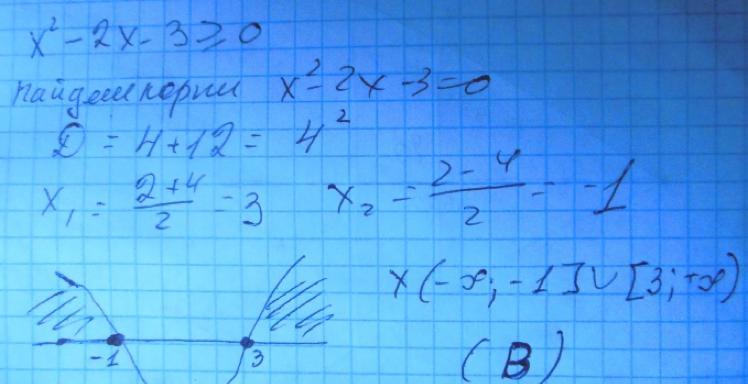 x² - 2x - 3 ≥ 0
найдем корни x² - 2x - 3 = 0
D = 4 + 12 = 4²
x₁ = (2+4)/2 = 3 x₂ = (2-4)/2 = -1
x (-∞; -1] ∪ [3; +∞)
-1 3
(B)